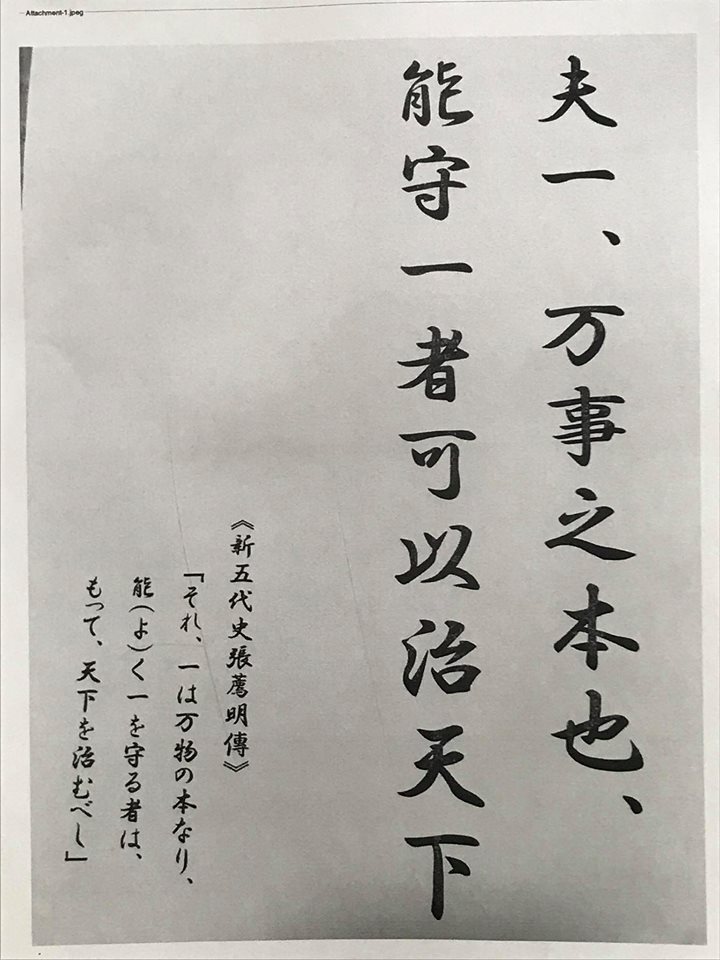 Attachment-1.jpeg
夫一、万事之本也、
能守一者可以治天下
《新五代史張薦明傳》
「それ、一は万物の本なり、
能(よ)く一を守る者は、
もって、天下を治むべし」